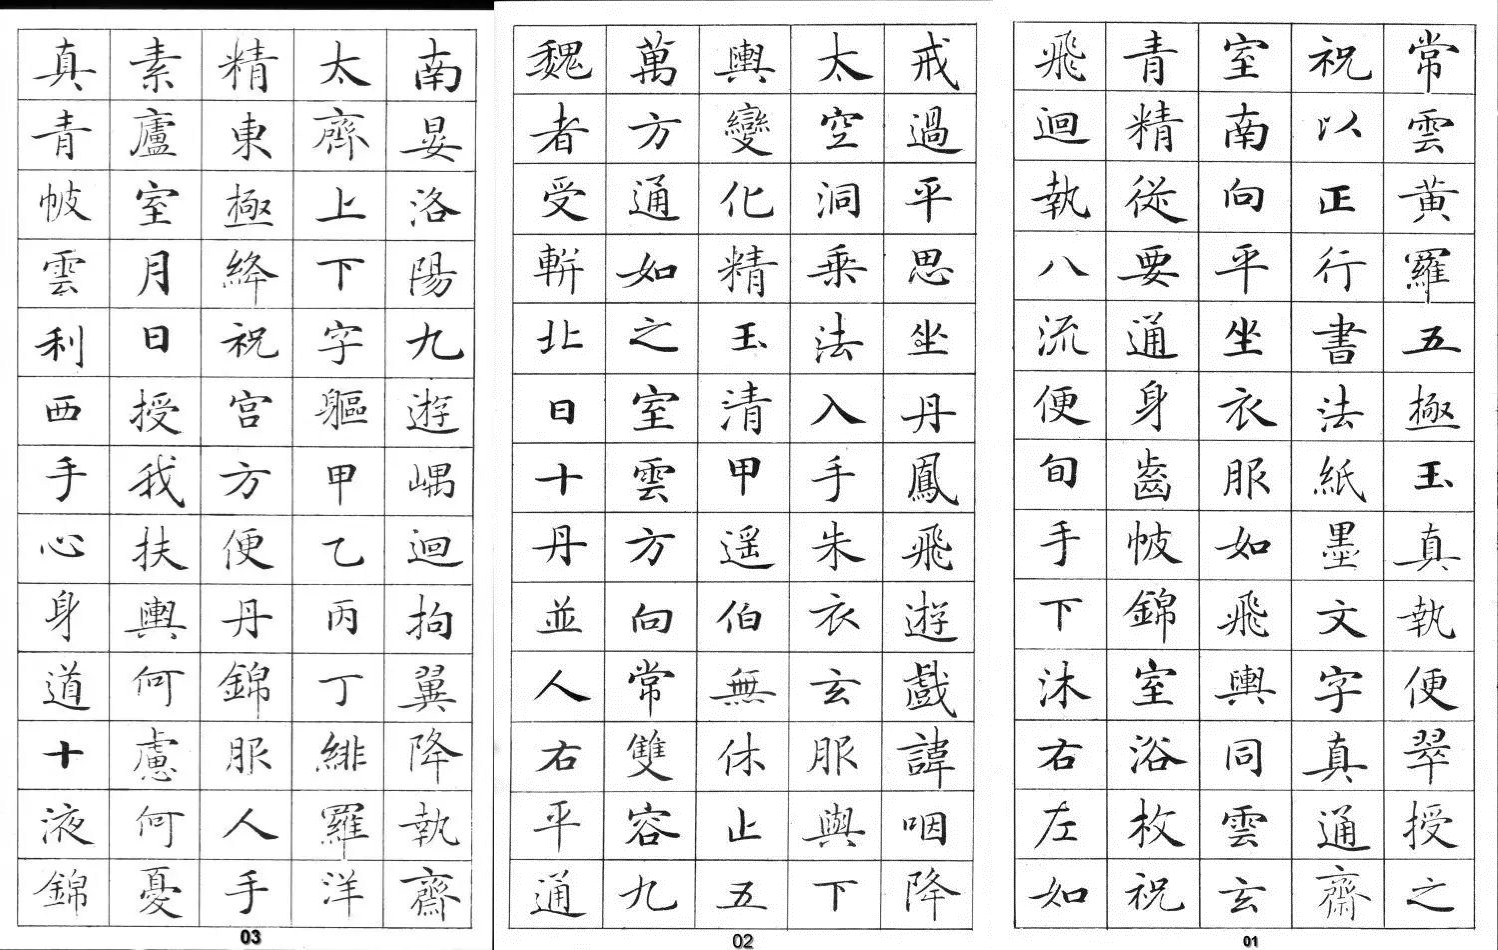 常雲黃羅五極玉真執便翠授之
祝以正行書法紙墨文字真通齋
室南向平坐衣服如飛輿同雲玄
青精從要通身齒帔錦室浴枚祝
飛迴執八流便旬手下沐右左如
01
戒過平思坐丹鳳飛遊戲諱咽降
太空洞乘法入手朱衣玄服與下
輿變化精玉清甲遥伯無休止五
萬方通如之室雲方向常雙容九
魏者受輧北日十丹並人右平通
02
南晏洛陽九遊嵎迴拘翼降執齋
太齊上下字軀甲乙丙丁緋羅洋
精東極絳祝宮方便丹錦服人手
素廬室月日授我扶輿何慮何憂
真青帔雲利西手心身道十液錦
03